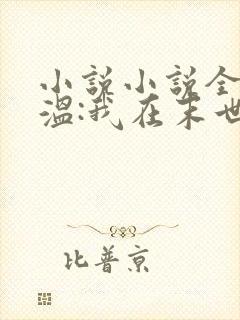 小说小说全
温:我在末世
比普京